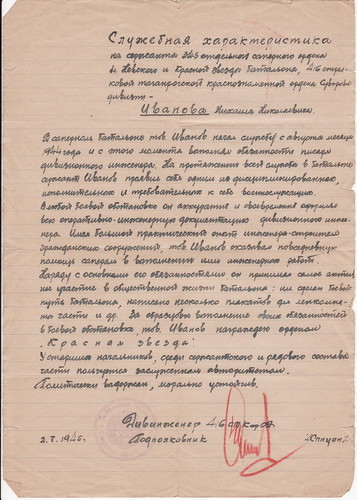 Служебная характеристика
на сержанта 345 отдельного саперного ордена
А. Невского и Красной Звезды батальона, 416 стрел-
ковой таганрогской краснознаменной ордена Суворова
дивизии -
Иванова Михаила Николаевича.
В саперном батальоне тов. Иванов начал службу с августа месяца
1944 года и с этого момента выполнял обязанности писаря
дивизионного инженера. На протяжении всей службы в батальоне
сержант Иванов проявил себя одним из дисциплинированных,
исполнительных и требовательных к себе военнослужащих.
В любой боевой обстановке он аккуратно и своевременно оформлял
всю оперативно-инженерную документацию дивизионного инже-
нера. Имея большой практический опыт инженера-строителя
гражданских сооружений, тов. Иванов оказывал повседневную
помощь саперам в выполнении ими инженерных работ.
Наряду с основными его обязанностями он принимал самое актив-
ное участие в общественной жизни батальона: им сделан боевой
путь батальона, написано несколько плакатов для ленкомна-
ты части и др. За образцовое выполнение своих обязанностей
в боевой обстановке, тов. Иванов награжден орденом
"Красная звезда".
У старших начальников, среди сержантского и рядового состава
части пользуется заслуженным авторитетом.
Политически выдержан, морально устойчив.
Дивинженер 416
Подполковник
2. 7. 194